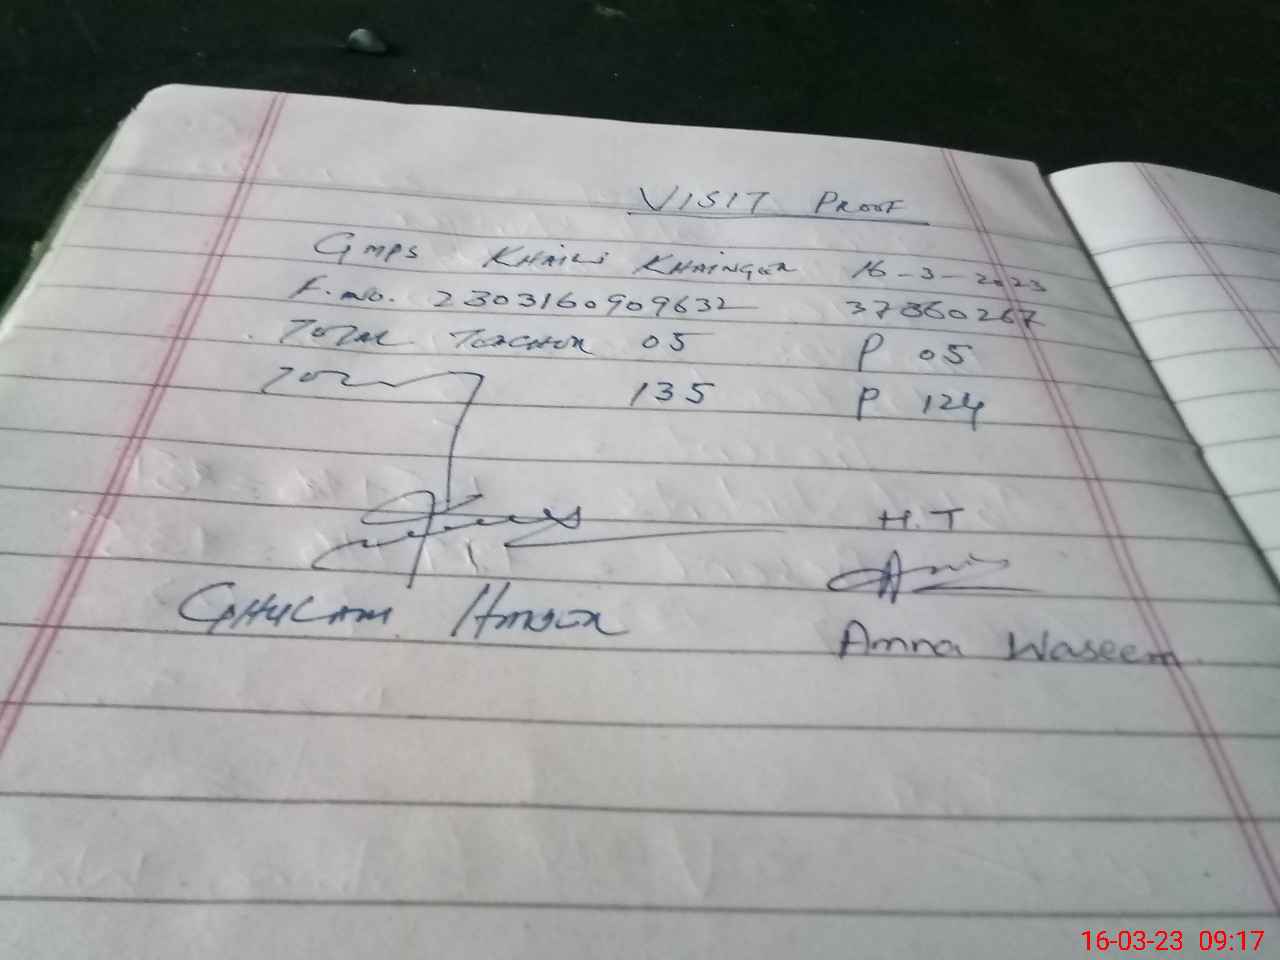 VISIT PROOF
GMPS KHAILI KHAINGER 16-3-2023
F.No. 2303160909632 37360267
TOTAL TEACHER 05 P 05
135 P 124
H.T
GHULAM
Amna Waseem
16-03-23 09:17